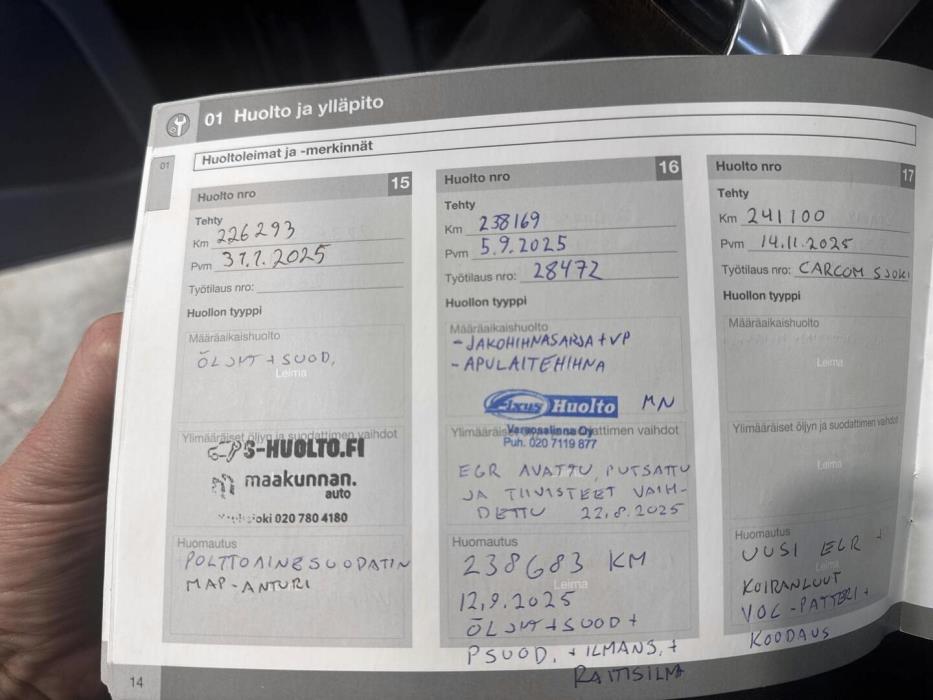 01 Huolto ja ylläpito
01
Huoltoleimat ja -merkinnät
Huolto nro 15
Tehty
Km 226293
Pvm 31.7.2025
Työtilaus nro:
Huollon tyyppi
Määräaikaishuolto
ÖLJYT + SUOD.
Leima
Ylimääräiset öljyn ja suodattimen vaihdot
S-HUOLTO.FI
maakunnan.
auto
020 780 4180
Huomautus
POLTTOAINESUODATIN
MAP-ANTURI
14
Huolto nro 16
Tehty
Km 238169
Pvm 5.9.2025
Työtilaus nro: 28472
Huollon tyyppi
Määräaikaishuolto
- JAKOHIHNASARJA + VP
- APULAITEHIHNA
Fixus Huolto MN
Ylimääräiset öljyn ja suodattimen vaihdot
Puh. 020 7119 877
EGR AVATTU, PUTSATTU
JA TIIVISTEET VAIH-
DETTU 22.8.2025
Huomautus
238683 KM
Leima
12.9.2025
ÖLJYT + SUOD +
PSUOD. + ILMANS. +
RAITISILMA
Huolto nro 17
Tehty
Km 241100
Pvm 14.11.2025
Työtilaus nro: CARCOM SJOKI
Huollon tyyppi
Määräaikaishuolto
Leima
Ylimääräiset öljyn ja suodattimen vaihdot
Leima
Huomautus
UUSI EGR +
Leima
KOIRANLUUT
VOC-PATTERI +
KOODAUS